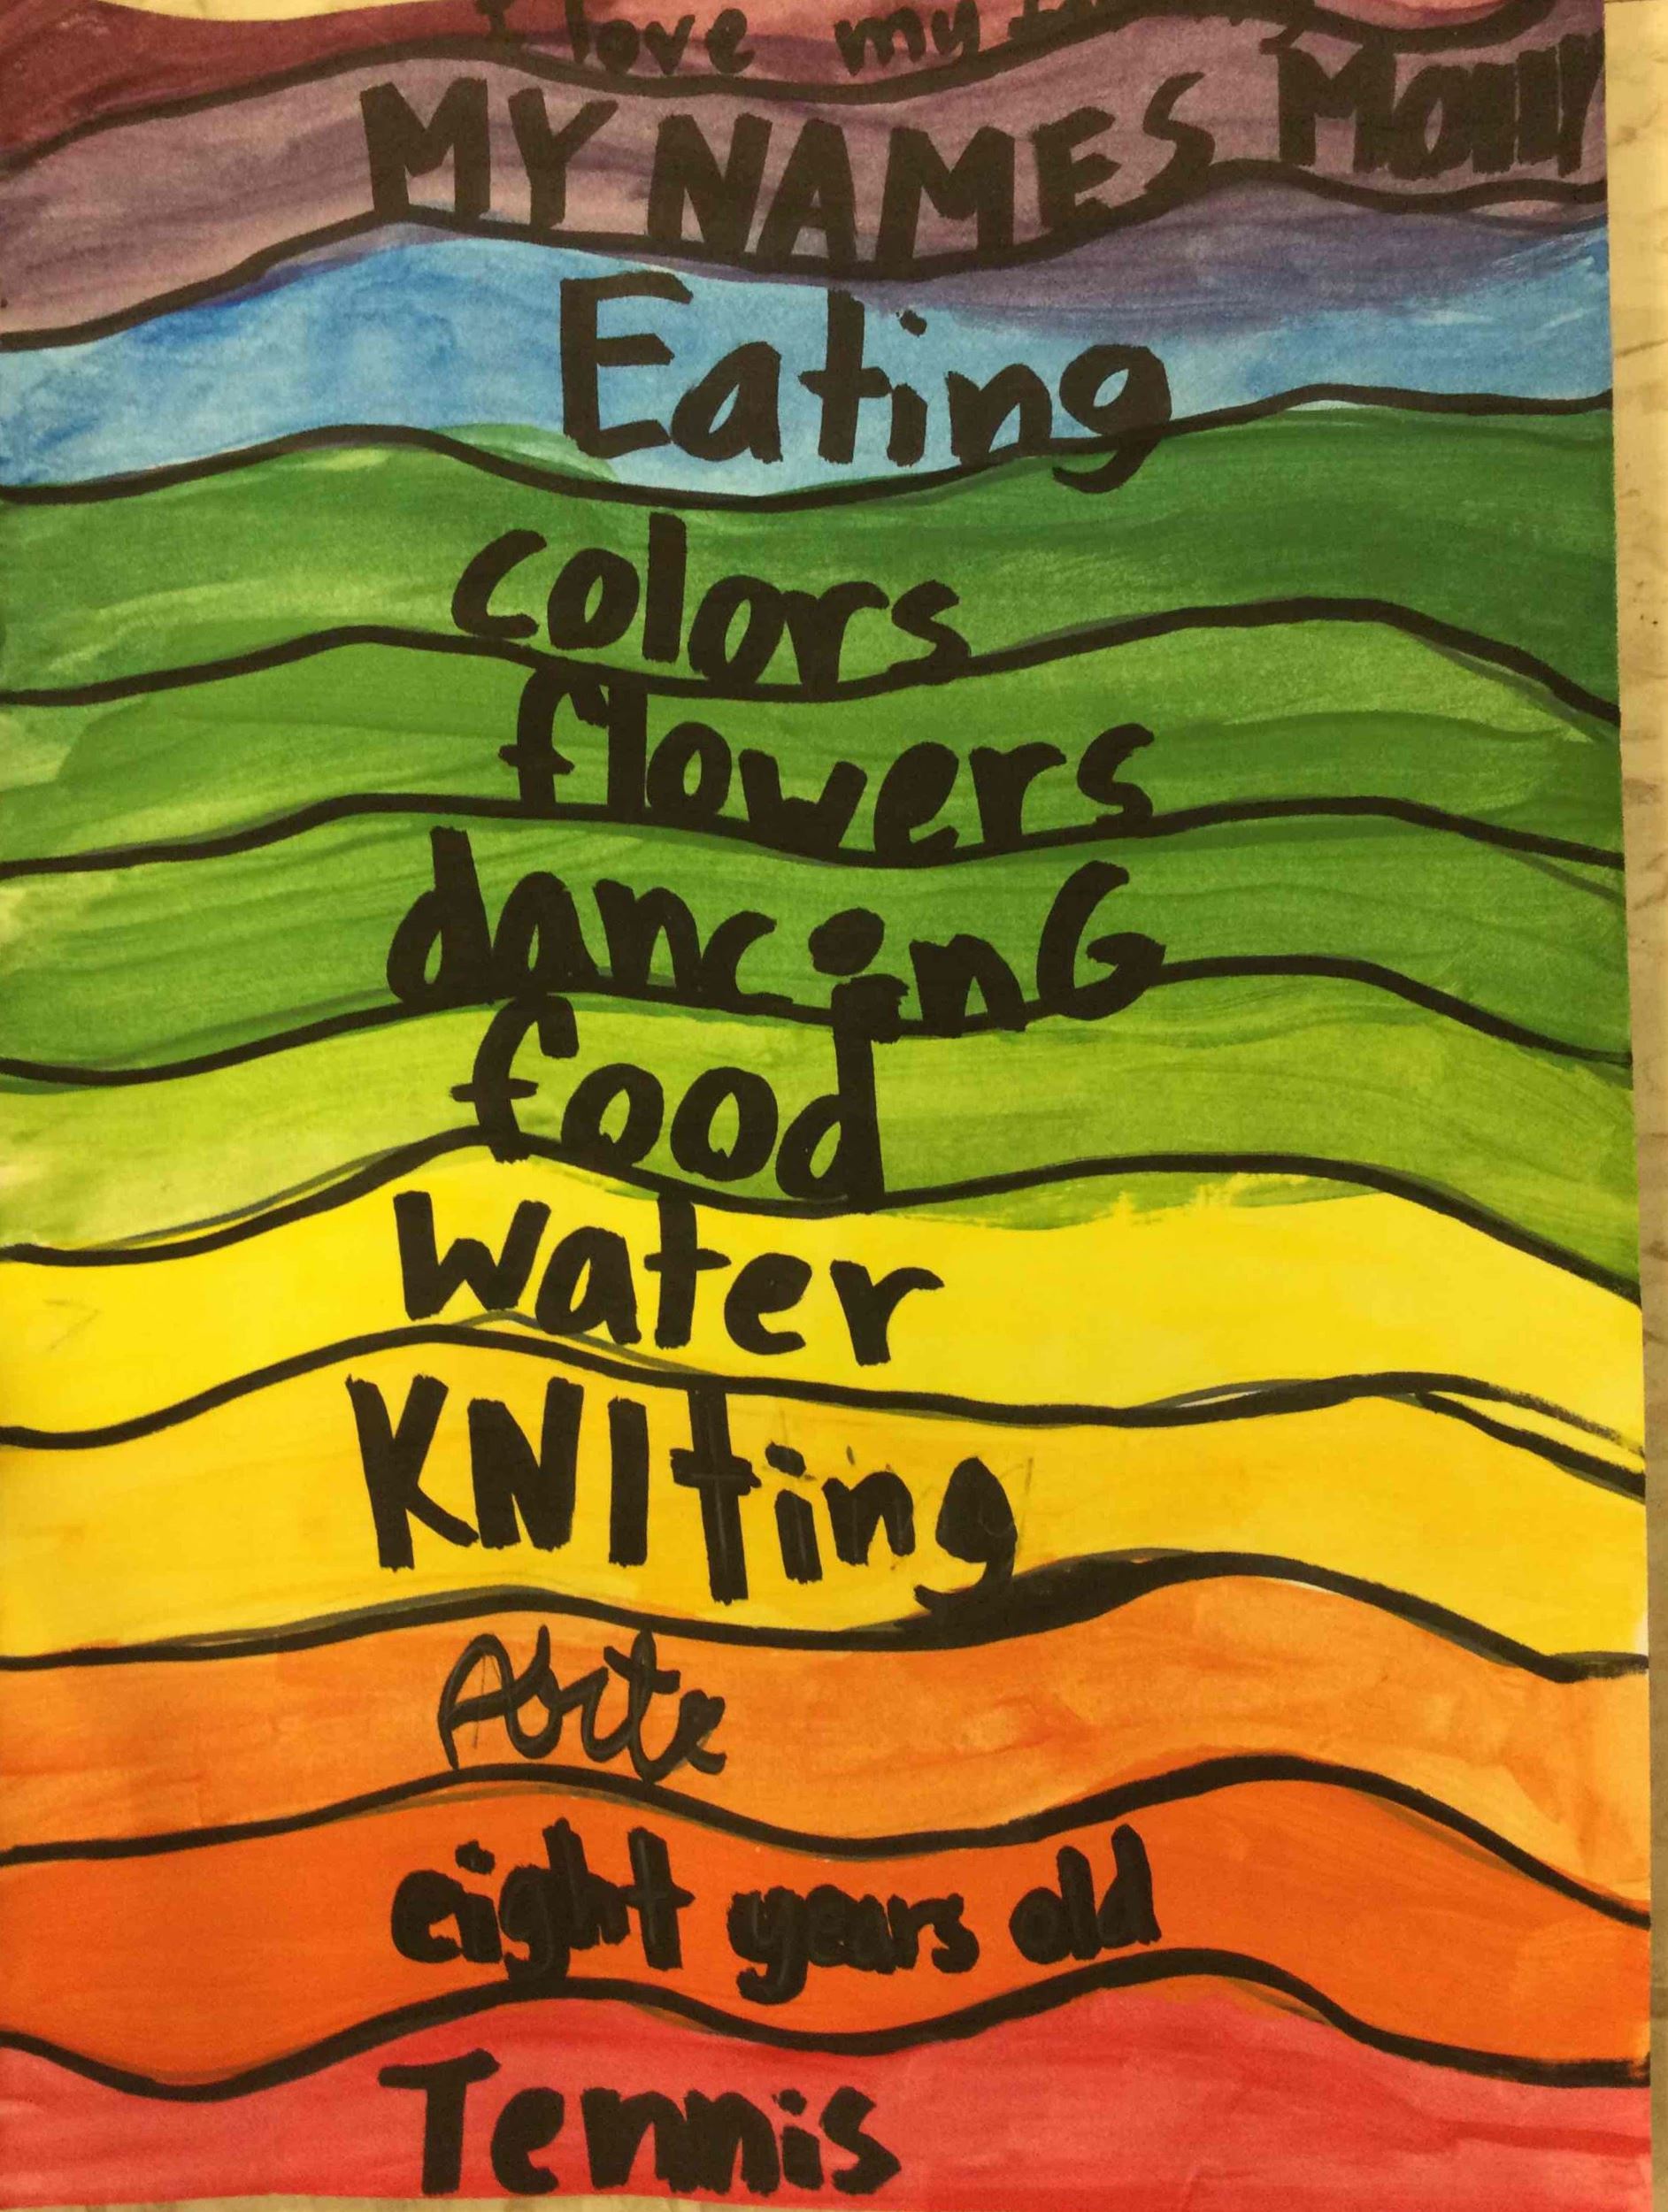 I love my
MY NAMES
Eating
colors
flowers
dancinG
food
water
KNITing
eight years old
Tennis